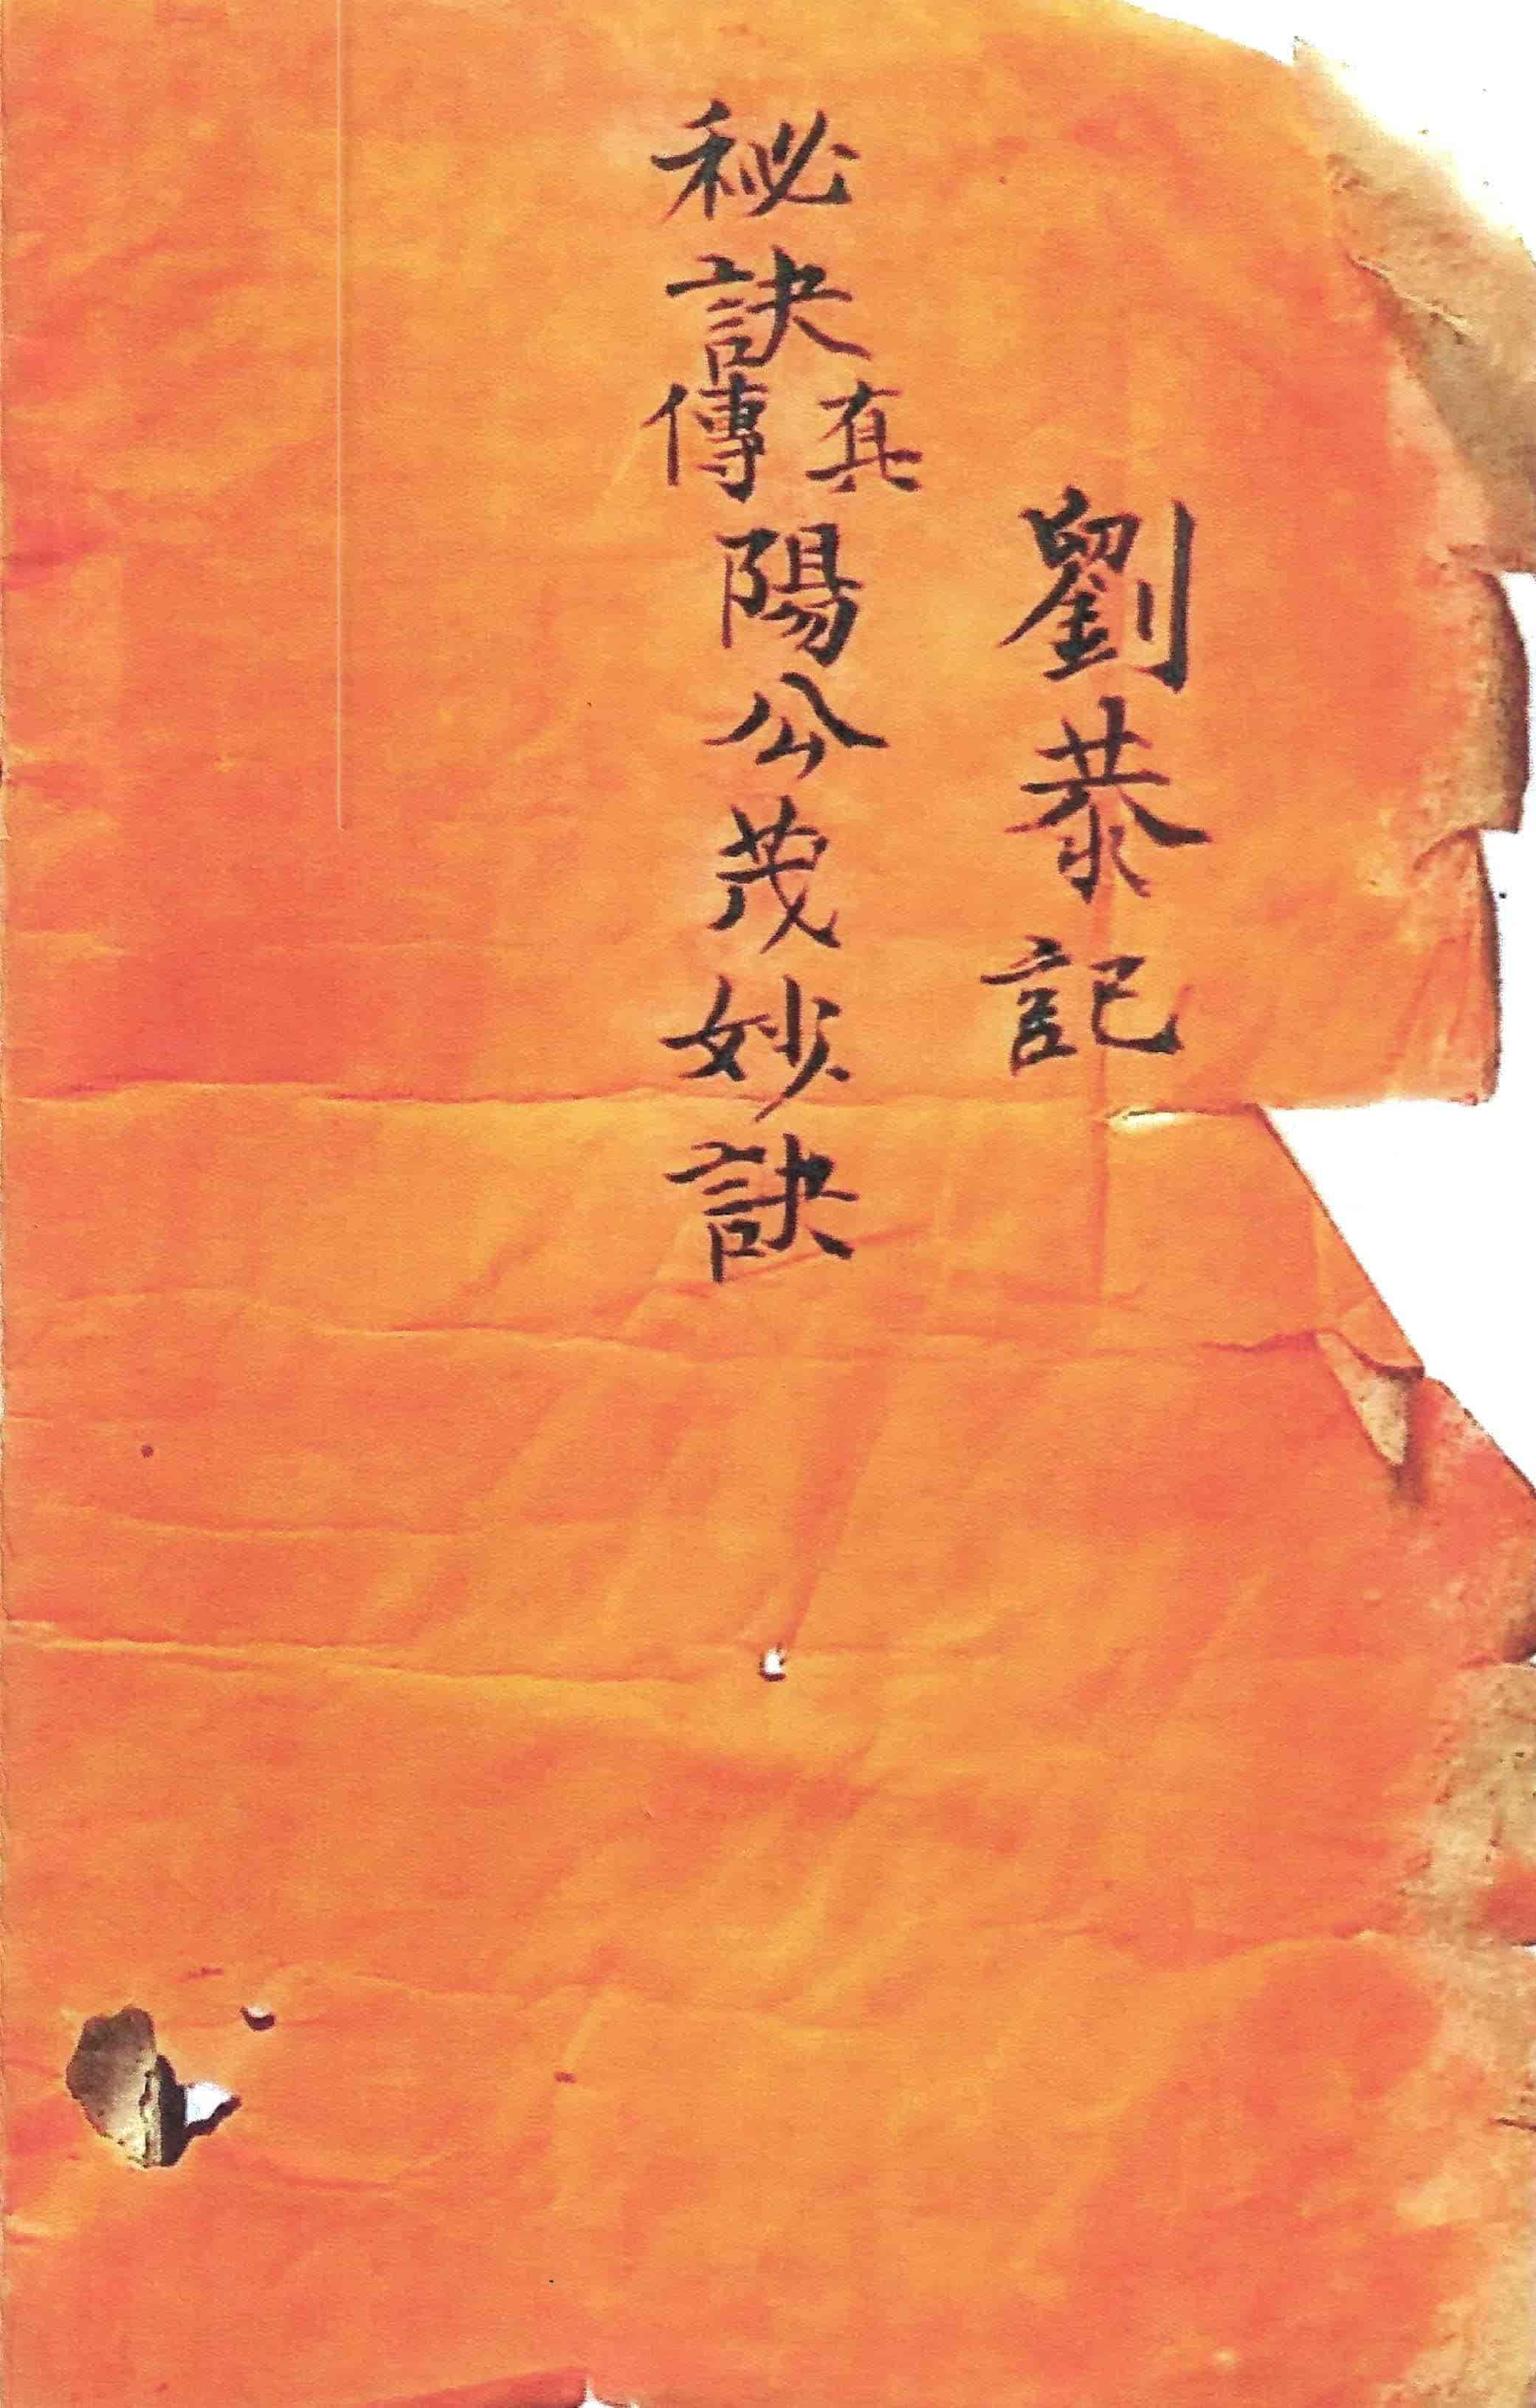 劉恭記
秘訣真傳陽公茂妙訣